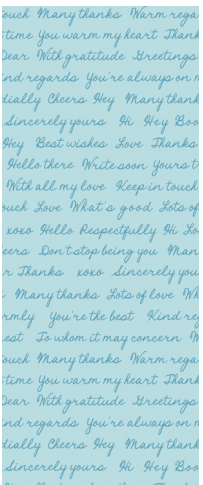 ouch Many thanks Warm rega
time You warm my heart Thank
Dear With gratitude Greetings
ind regards You're always on m
dially Cheers Hey Many thank
Sincerely yours Hi Hey Boo
Hey Best wishes Love Thanks
Hello there Write soon Yours t
With all my love Keep in touch
ouch Love What's good Lots of
xoxo Hello Respectfully Hi Lo
eers Don't stop being you Man
r Thanks xoxo Sincerely you
Many thanks Lots of love Wh
rmly You're the best Kind re
est To whom it may concern W
ouch Many thanks Warm rega
time You warm my heart Thank
Dear With gratitude Greetings
ind regards You're always on m
dially Cheers Hey Many thank
Sincerely yours Hi Hey Boo